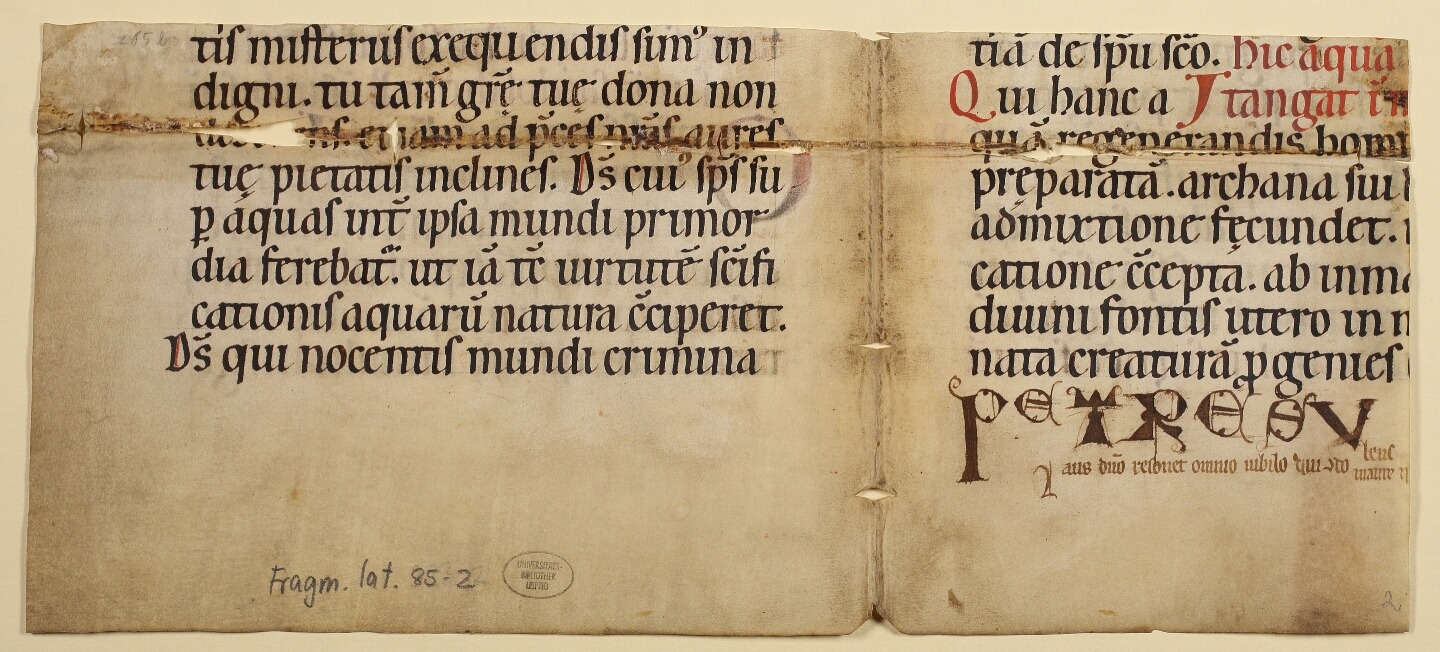 tis misteriis exequendis sim⁹ in
digni. tu tam̄ grē tuę dona non
ens. etiam ad p̄ces nr̄as aures
tuę pietatis inclines. Ds̄ cui⁹ sp̄s su
ꝑ aquas int̄ ipsa mundi primor
dia ferebat᷑. ut iā tc̄ uirtutē sc̄ifi
cationis aquarū natura c̄ciperet.
Ds̄ qui nocentis mundi crimina
tiā de sp̄u sc̄o. hic aqua
Qui hanc a tangat
quā regenerandis homi
pręparatā. archana sui
admixtione fęcundet.
catione c̄cepta. ab inma
diuini fontis utero in n
nata creaturā ꝓgenies
PETRE SV
aus dn̄o resonet omnio iubilo
Fragm. lat. 85-2
UNIVERSITÄTS-
BIBLIOTHEK
LEIPZIG
2